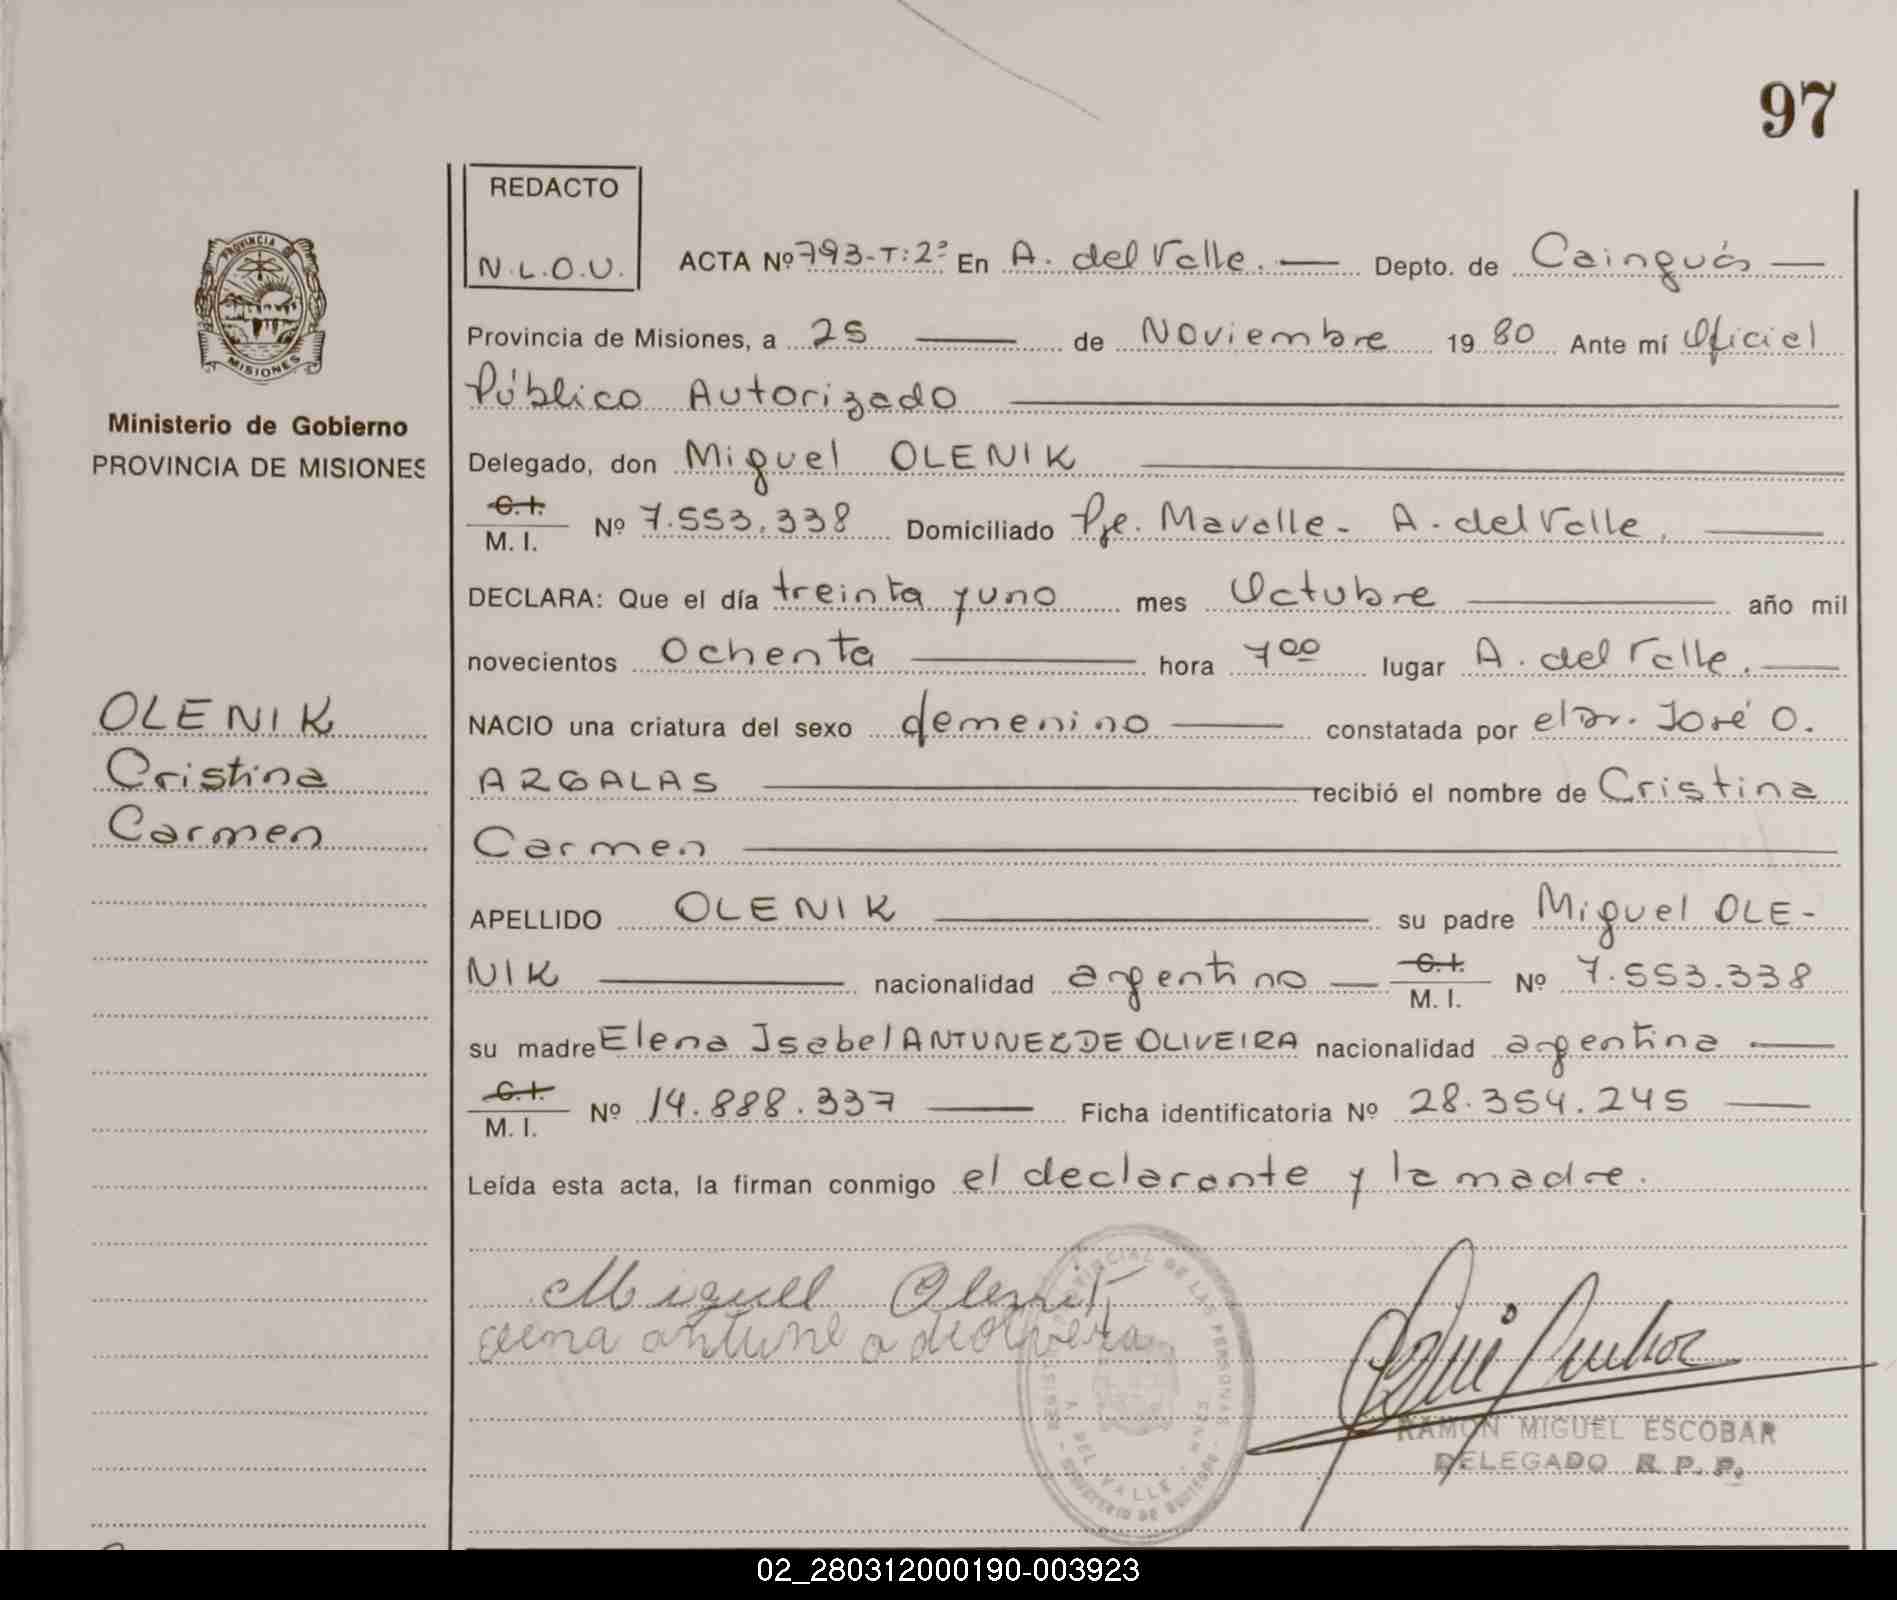 97
REDACTO
N.L.O.U.
ACTA Nº 793-T:2º En A. del Valle. Depto. de Cainguás
Provincia de Misiones, a 25 de Noviembre 19 80 Ante mí Oficial
Público Autorizado
Delegado, don Miguel OLENIK
C.I.
M. I. Nº 7.553.338 Domiciliado Pje. Mavalle - A. del Valle.
DECLARA: Que el día treinta y uno mes Octubre año mil
novecientos Ochenta hora 7 00 lugar A. del Valle.
NACIO una criatura del sexo femenino constatada por el Dr. José O.
ARGALAS recibió el nombre de Cristina
Carmen
APELLIDO OLENIK su padre Miguel OLE-
NIK nacionalidad argentino C.I. M. I. Nº 7.553.338
su madre Elena Isabel ANTUNEZ DE OLIVEIRA nacionalidad argentina
C.I.
M. I. Nº 14.888.337 Ficha identificatoria Nº 28.354.245
Leída esta acta, la firman conmigo el declarante y la madre.
PROVINCIA
MISIONES
Ministerio de Gobierno
PROVINCIA DE MISIONES
OLENIK
Cristina
Carmen
Miguell Olenik
PROVINCIAL DE LAS PERSONAS
A. DEL VALLE - MNES
RAMON MIGUEL ESCOBAR
DELEGADO R. P. P.
02_280312000190-003923